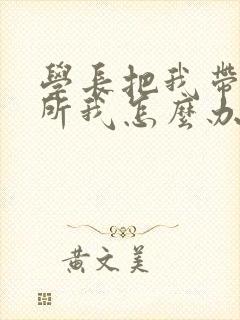 學長把我帶
所我怎麼办
黃文美